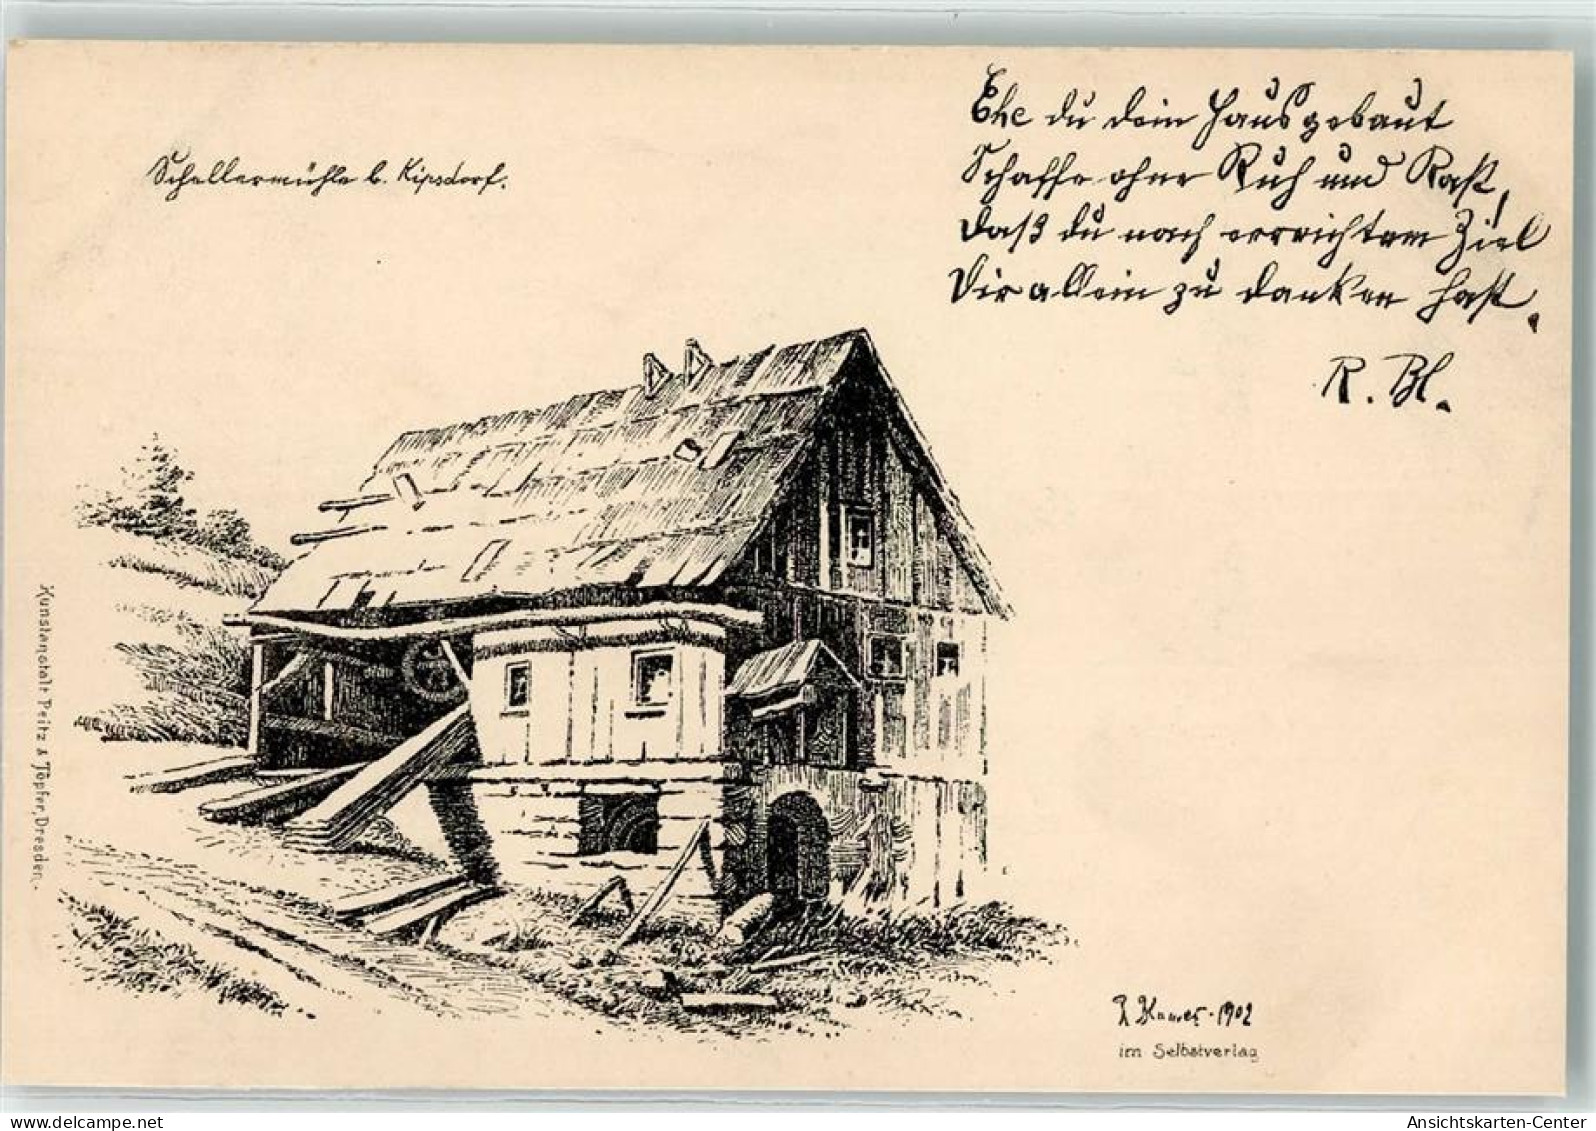 Ehe du dein Haus gebaut
Schaffe ohne Ruh und Rast,
Daß du nach erreichtem Ziel
Dir allein zu danken hast.
R. Bl.
Schellermühle b. Kipsdorf.
Kunstanstalt Peitz & Töpfer, Dresden.
1902
im Selbstverlag
www.oldthing.de
Ansichtskarten-Center